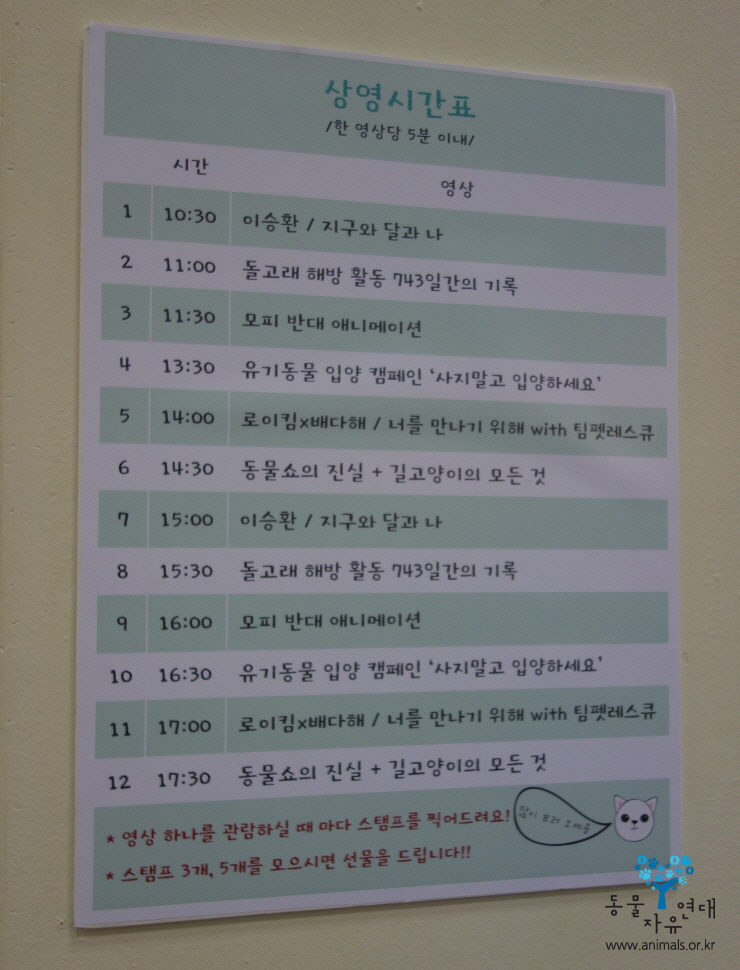 상영시간표
/한 영상당 5분 이내/
시간 영상
1 10:30 이승환 / 지구와 달과 나
2 11:00 돌고래 해방 활동 743일간의 기록
3 11:30 모피 반대 애니메이션
4 13:30 유기동물 입양 캠페인 ‘사지말고 입양하세요’
5 14:00 로이킴x배다해 / 너를 만나기 위해 with 팀펫레스큐
6 14:30 동물쇼의 진실 + 길고양이의 모든 것
7 15:00 이승환 / 지구와 달과 나
8 15:30 돌고래 해방 활동 743일간의 기록
9 16:00 모피 반대 애니메이션
10 16:30 유기동물 입양 캠페인 ‘사지말고 입양하세요’
11 17:00 로이킴x배다해 / 너를 만나기 위해 with 팀펫레스큐
12 17:30 동물쇼의 진실 + 길고양이의 모든 것
* 영상 하나를 관람하실 때 마다 스탬프를 찍어드려요!
많이 보러 오세송
* 스탬프 3개, 5개를 모으시면 선물을 드립니다!!
동물자유연대
www.animals.or.kr